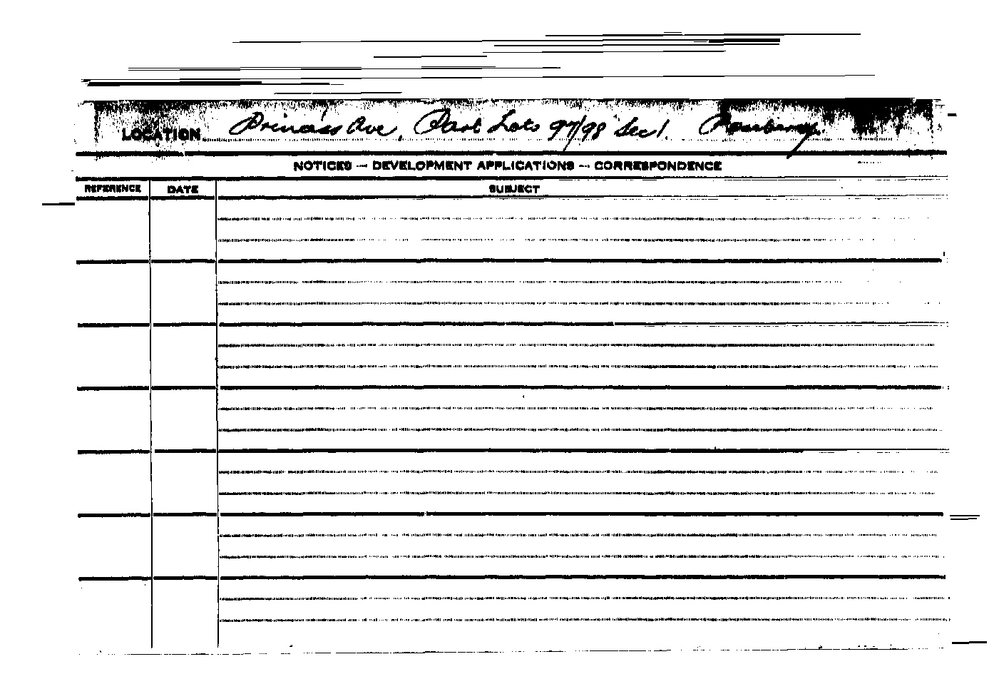 LOCATION Princess Ave, Part Lots 97/98 Sec 1. Rosebery.
NOTICES — DEVELOPMENT APPLICATIONS — CORRESPONDENCE
REFERENCE DATE SUBJECT